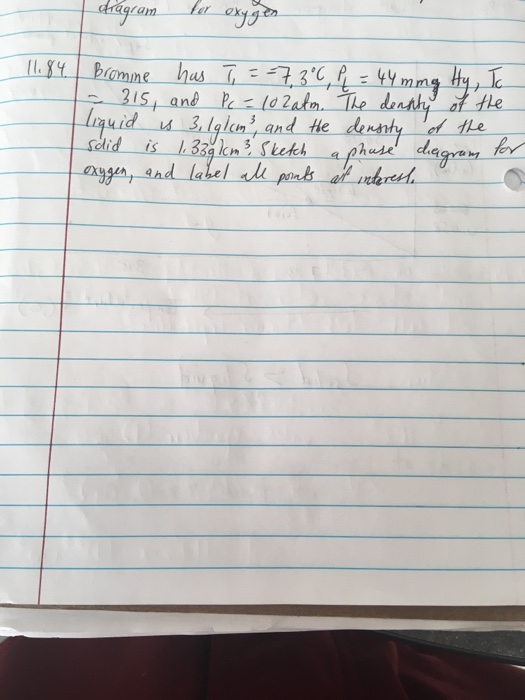 diagram for oxygen
11.84. Bromine has T₁ = -7.3°C, Pₜ = 44 mmg Hg, Tc
= 315, and Pc = 102 atm. The density of the
liquid is 3.1g/cm³, and the density of the
solid is 1.33g/cm³. Sketch a phase diagram for
oxygen, and label all points of interest.